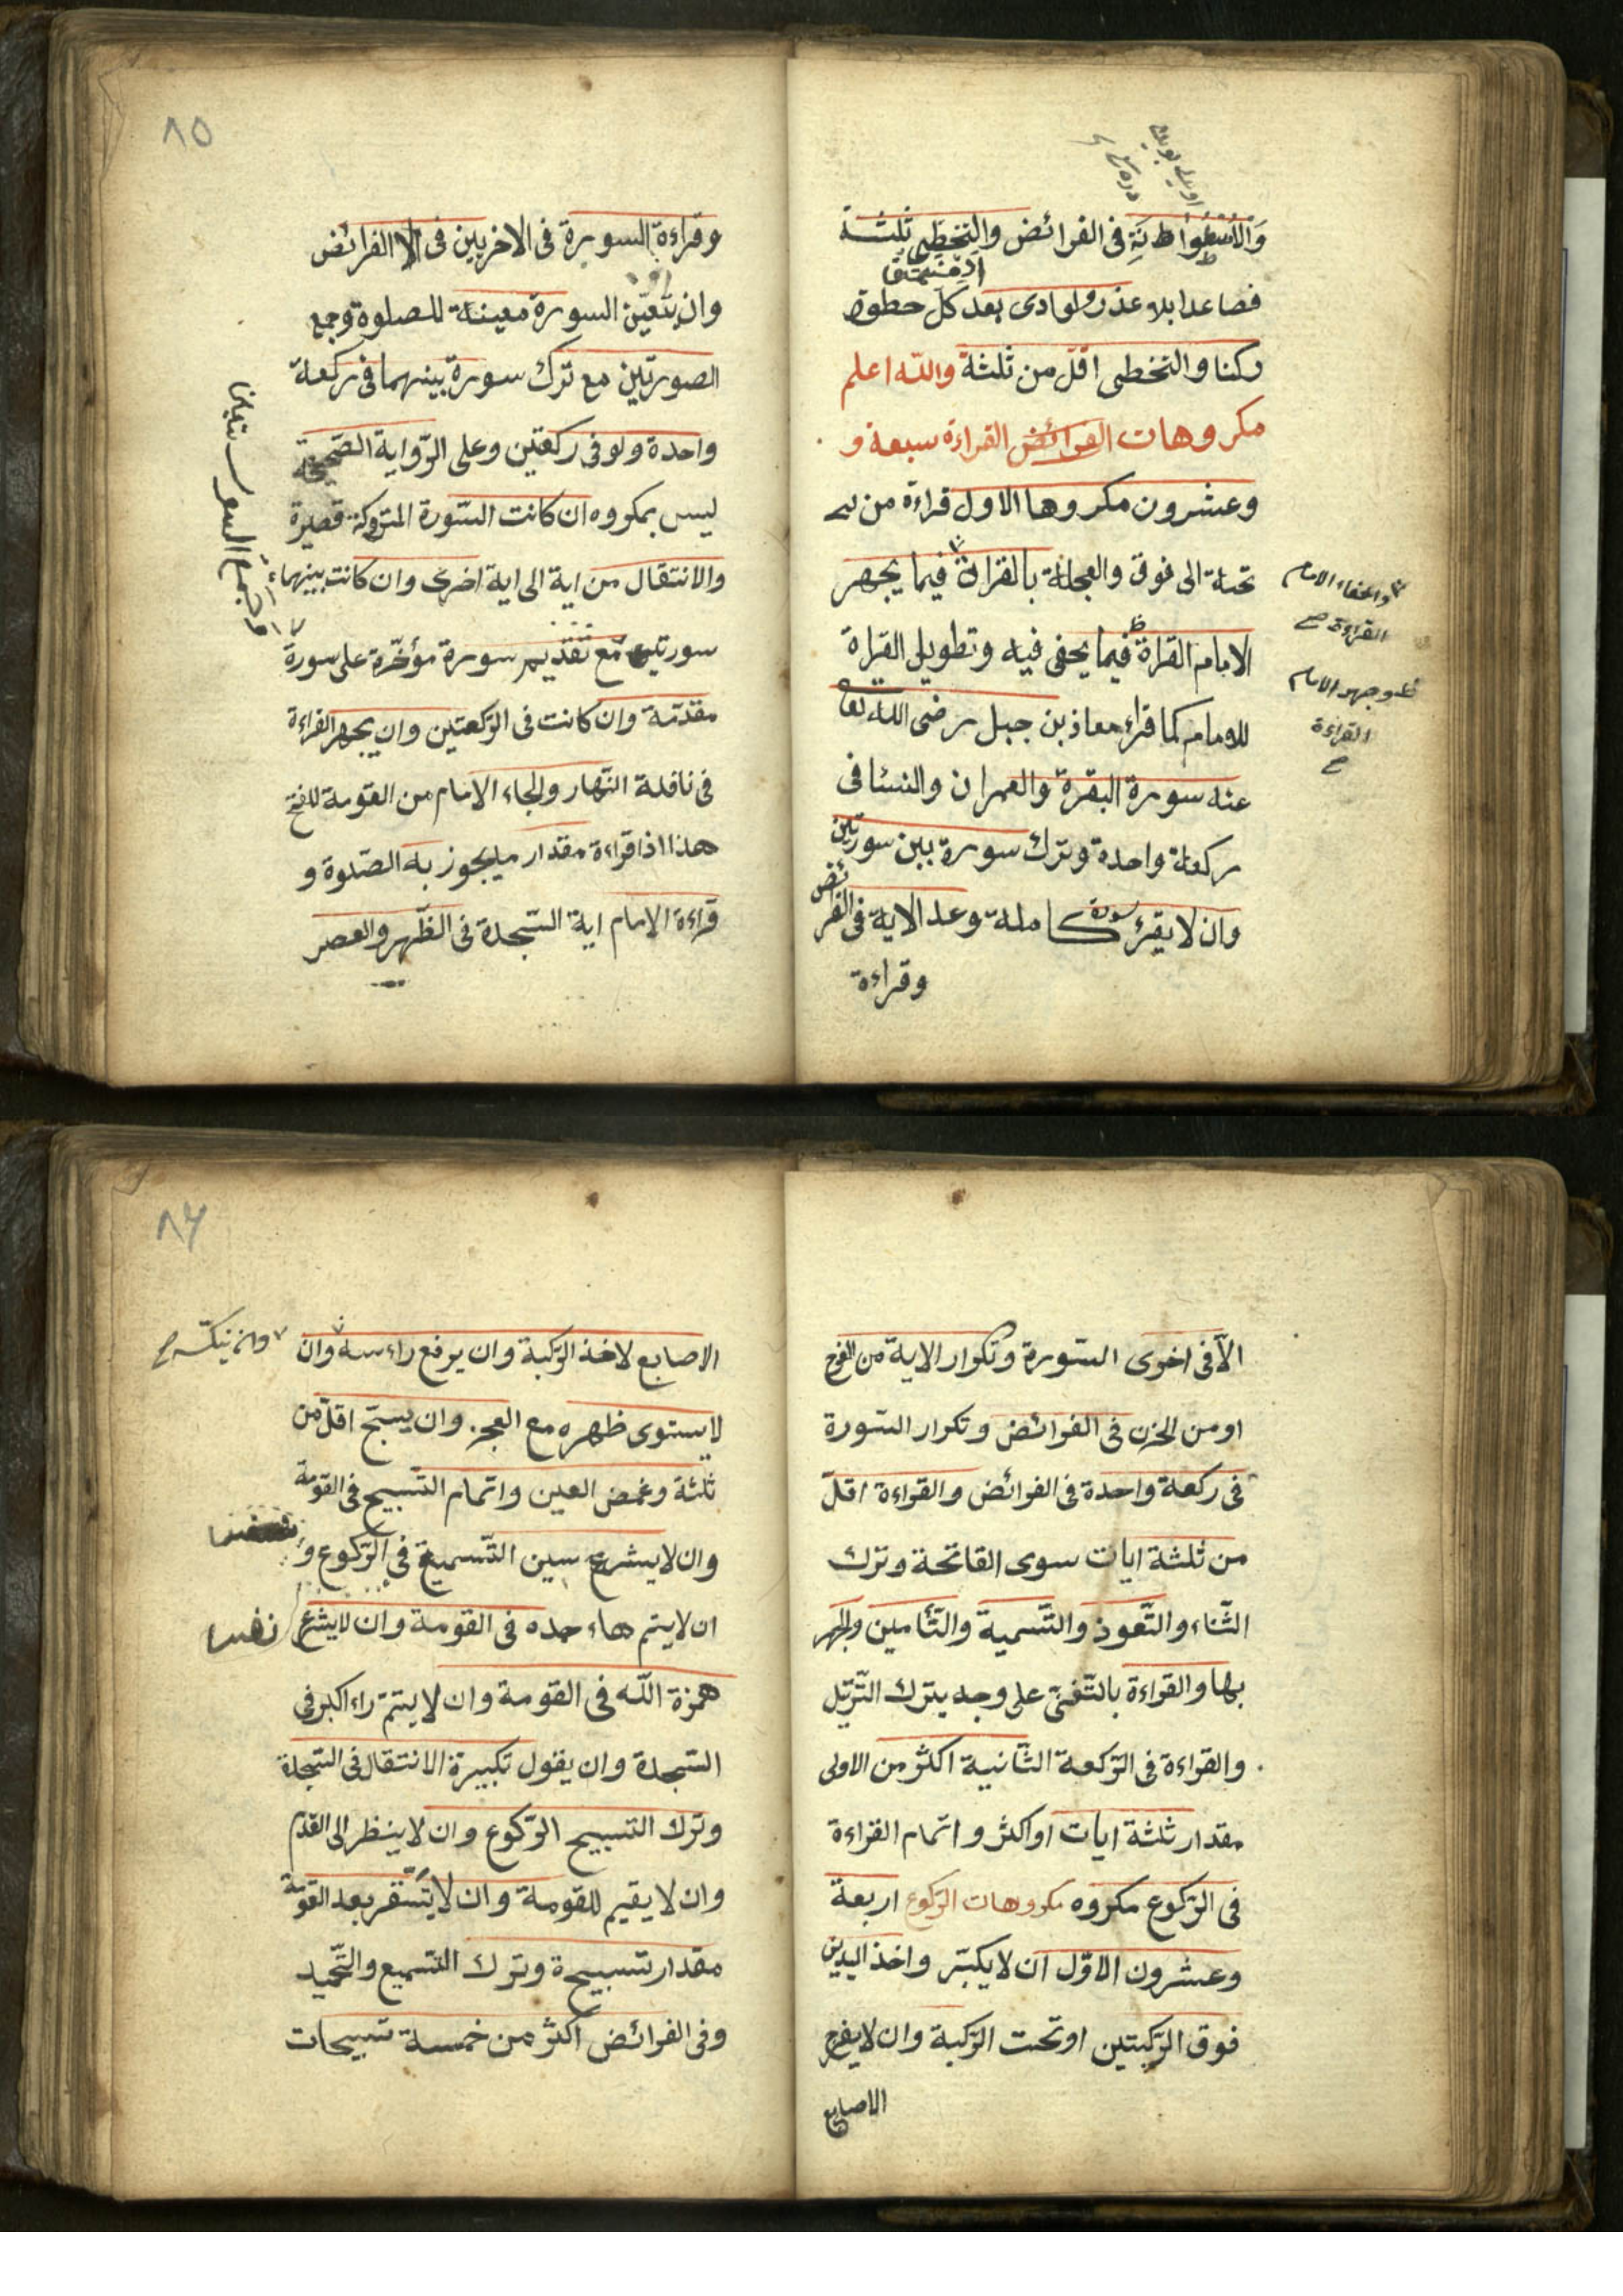 فى الفرائض والتخطى ثلثة
فصاعدا بلا عذر ولو ادى بعد كل خطوة
ركنا والتخطى اقل من ثلثة والله اعلم
مكروهات الفرائض القراءة سبعة و
وعشرون مكروها الاول قراءة من
تحته الى فوق والعجلة بالقراءة فيما يجهر
واخفاء الامام
القراءة صح
الامام القراة فيما يخفى فيه وتطويل القراة
وجهر الامام
القراءة
صح
للامام كما قراء معاذ بن جبل رضى الله تعا
عنه سورة البقرة والعمران والنسا فى
ركعة واحدة وترك سورة بين سورتين
وان لا يقرئ سورة كاملة وعد الاية فى الفرائض
وقراءة
٨٥
وقراءة السورة فى الاخريين فى الفرائض
وان يتعين السورة معينة للصلوة وجمع
الصورتين مع ترك سورة بينهما فى ركعة
واحدة ولو فى ركعتين وعلى الرواية الصحيحة
ليس بمكروه ان كانت السورة المتروكة قصيرة
والانتقال من اية الى اية اخرى وان كانت بينهما
سورتين مع تقديم سورة مؤخرة على سورة
مقدمة وان كانت فى الركعتين وان يجهر القراءة
فى نافلة النهار ولجاء الامام من القومة للفتح
هذا اذا قراءة مقدار ما يجوز به الصلوة و
قراءة الامام اية السجدة فى الظهر والعصر
الا فى اخرى السورة وتكرار الاية من الفرح
او من الحزن فى الفرائض وتكرار السورة
فى ركعة واحدة فى الفرائض والقراءة اقل
من ثلثة ايات سوى الفاتحة وترك
الثناء والتعوذ والتسمية والتأمين والجهر
بها والقراءة بالتغنى على وجه يترك الترتيل
والقراءة فى الركعة الثانية اكثر من الاولى
مقدار ثلثة ايات او اكثر واتمام القراءة
فى الركوع مكروه مكروهات الركوع اربعة
وعشرون الاول ان لا يكبر واخذ اليدين
فوق الركبتين او تحت الركبة وان لا يفرج
الاصابع
٨٦
الاصابع لاخذ الركبة وان يرفع راءسه وان
وان ينكسه صح
لا يستوى ظهره مع العجز وان يسبح اقل من
ثلثة وغمض العين واتمام التسبيح فى القومة
وان لا يشرع سين التسميع فى الركوع و
ان لا يتم هاء حمده فى القومة وان لا يشرع
همزة الله فى القومة وان لا يتم راء اكبر فى
السجدة وان يقول تكبيرة الانتقال فى السجدة
وترك التسبيح الركوع وان لا ينظر الى القدم
وان لا يقيم للقومة وان لا يستقر بعد القومة
مقدار تسبيحة وترك التسميع والتحميد
وفى الفرائض اكثر من خمسة تسبيحات